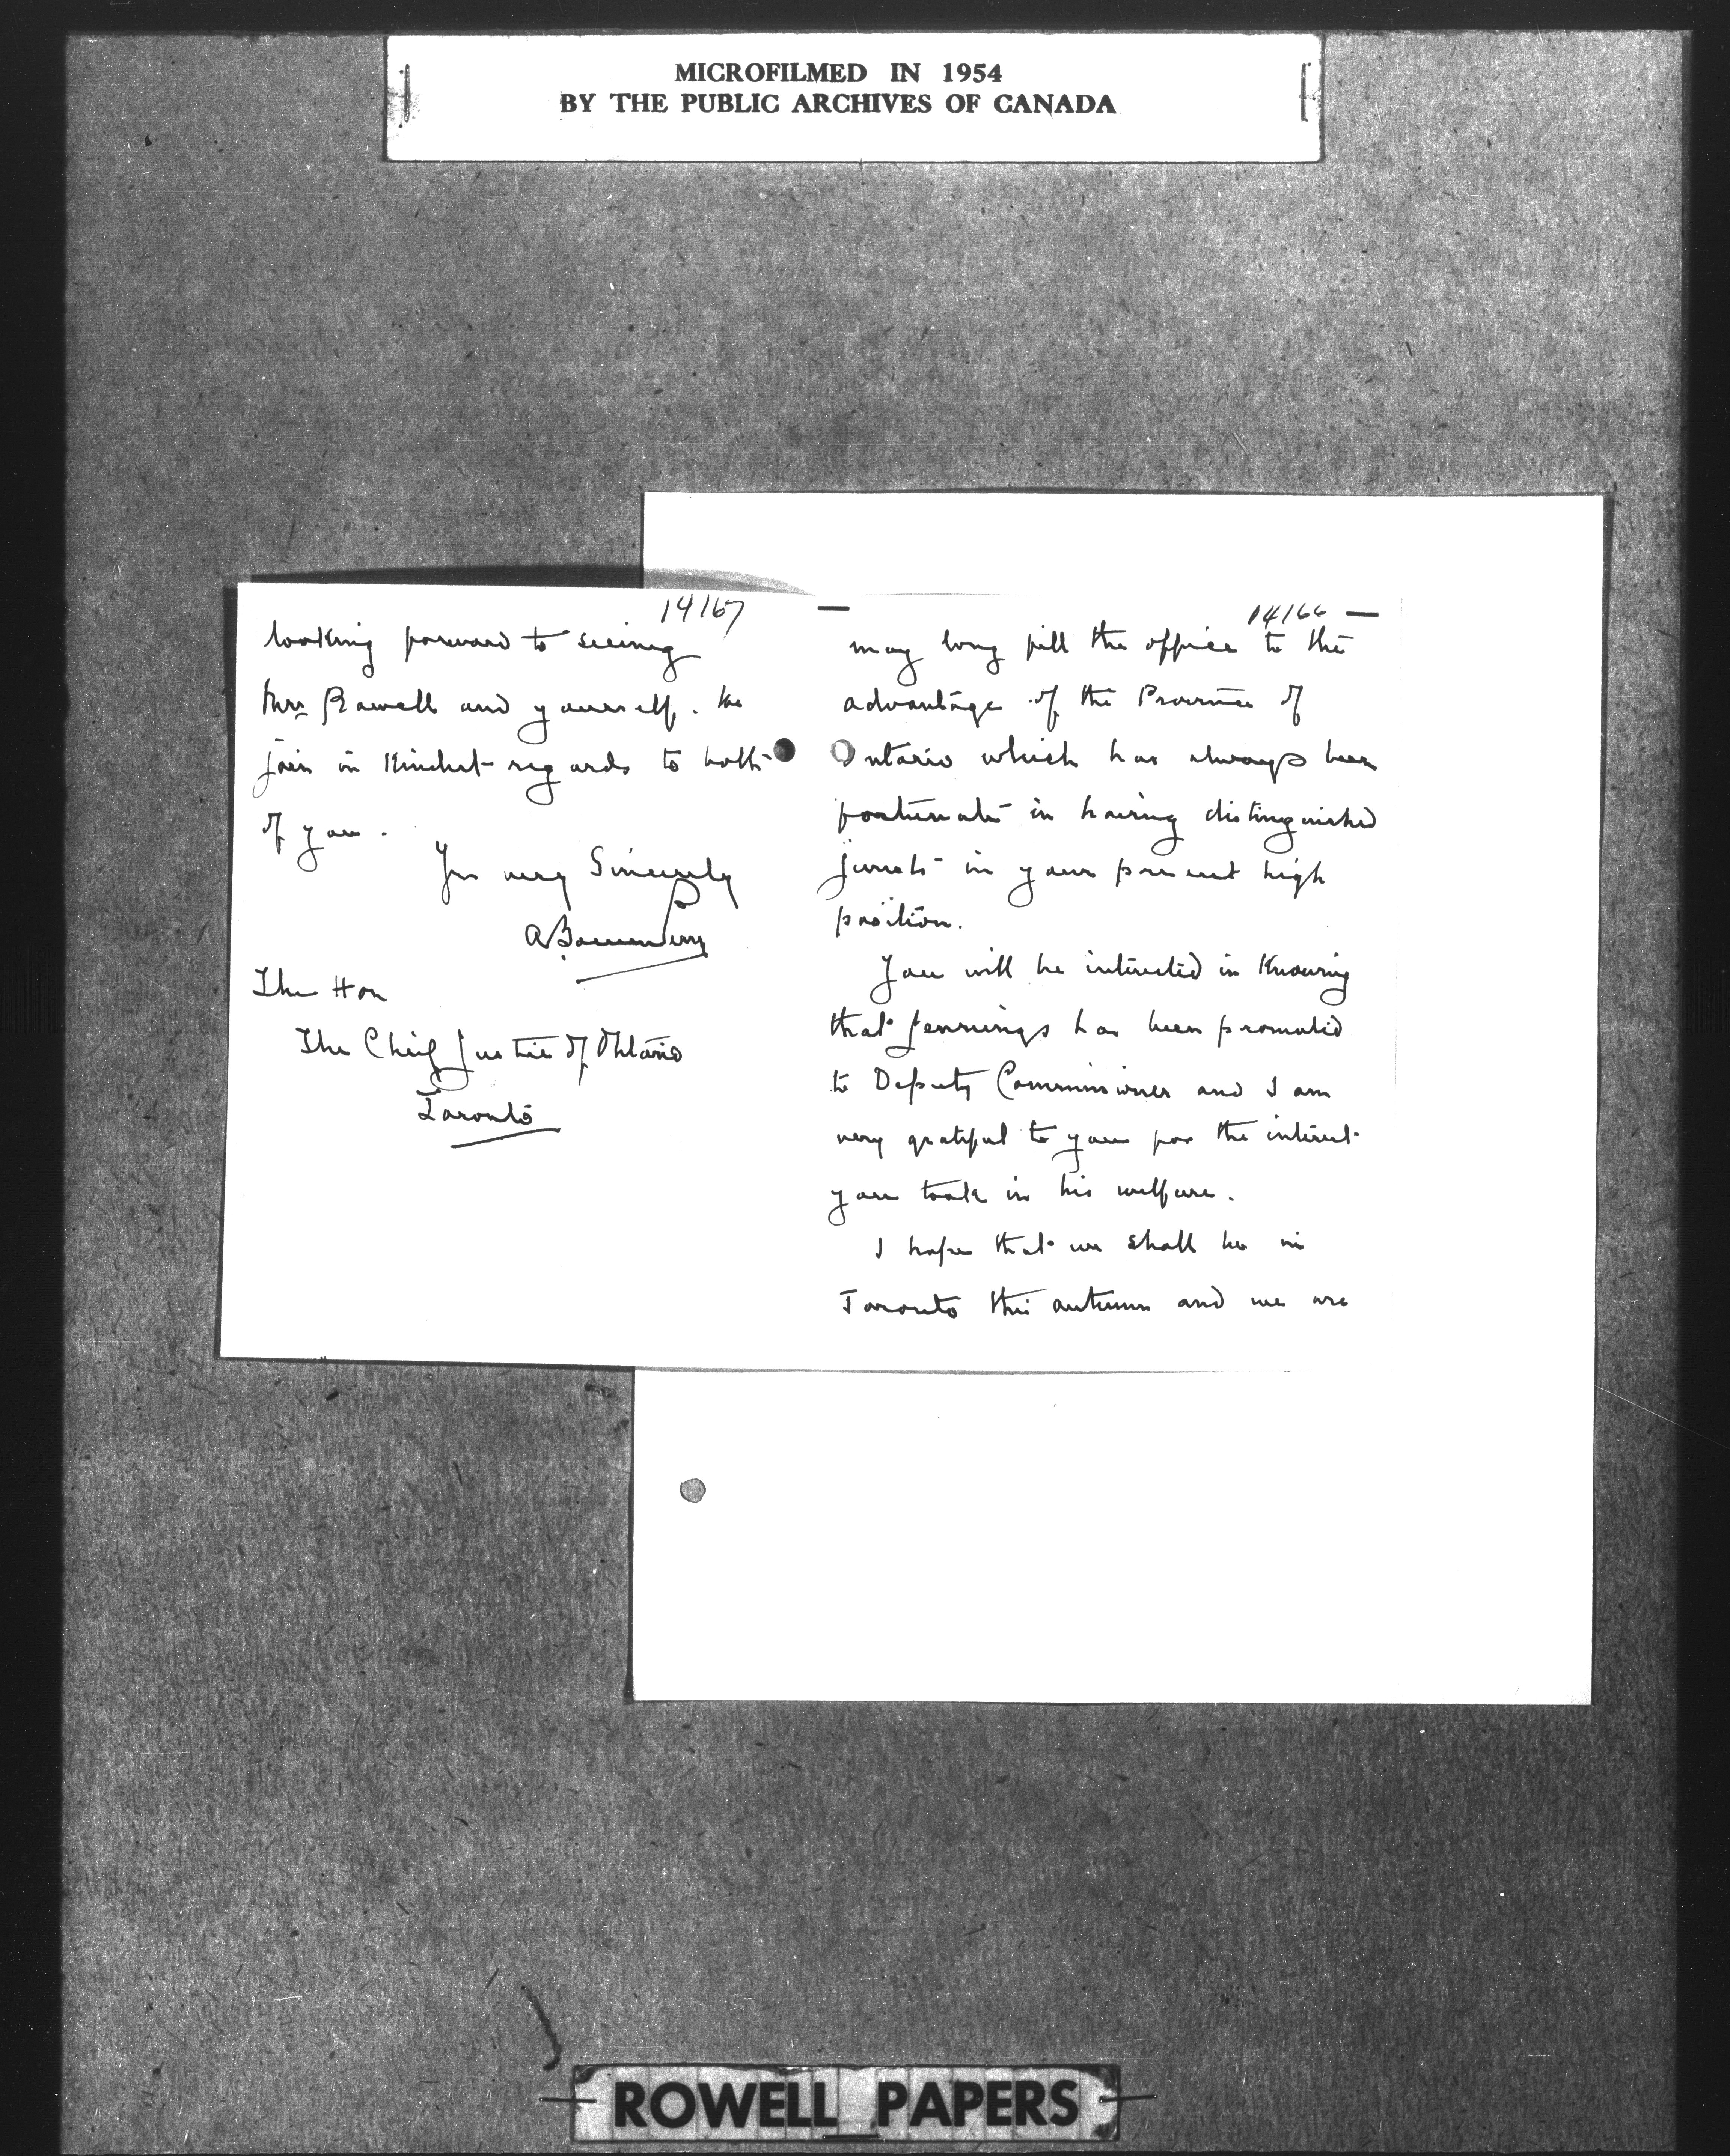 MICROFILMED IN 1954
BY THE PUBLIC ARCHIVES OF CANADA
14167
looking forward to seeing
Mrs Rowell and yourself. We
join in kindest regards to both
of you.
Yrs very Sincerely
The Hon
The Chief Justice of Ontario
Toronto
14166
may long fill the office to the
advantage of the Province of
Ontario which has always been
fortunate in having distinguished
jurists in your present high
position.
You will be interested in knowing
that Jennings has been promoted
to Deputy Commissioner and I am
very grateful to you for the interest
you took in his welfare.
I hope that we shall be in
Toronto this autumn and we are
ROWELL PAPERS